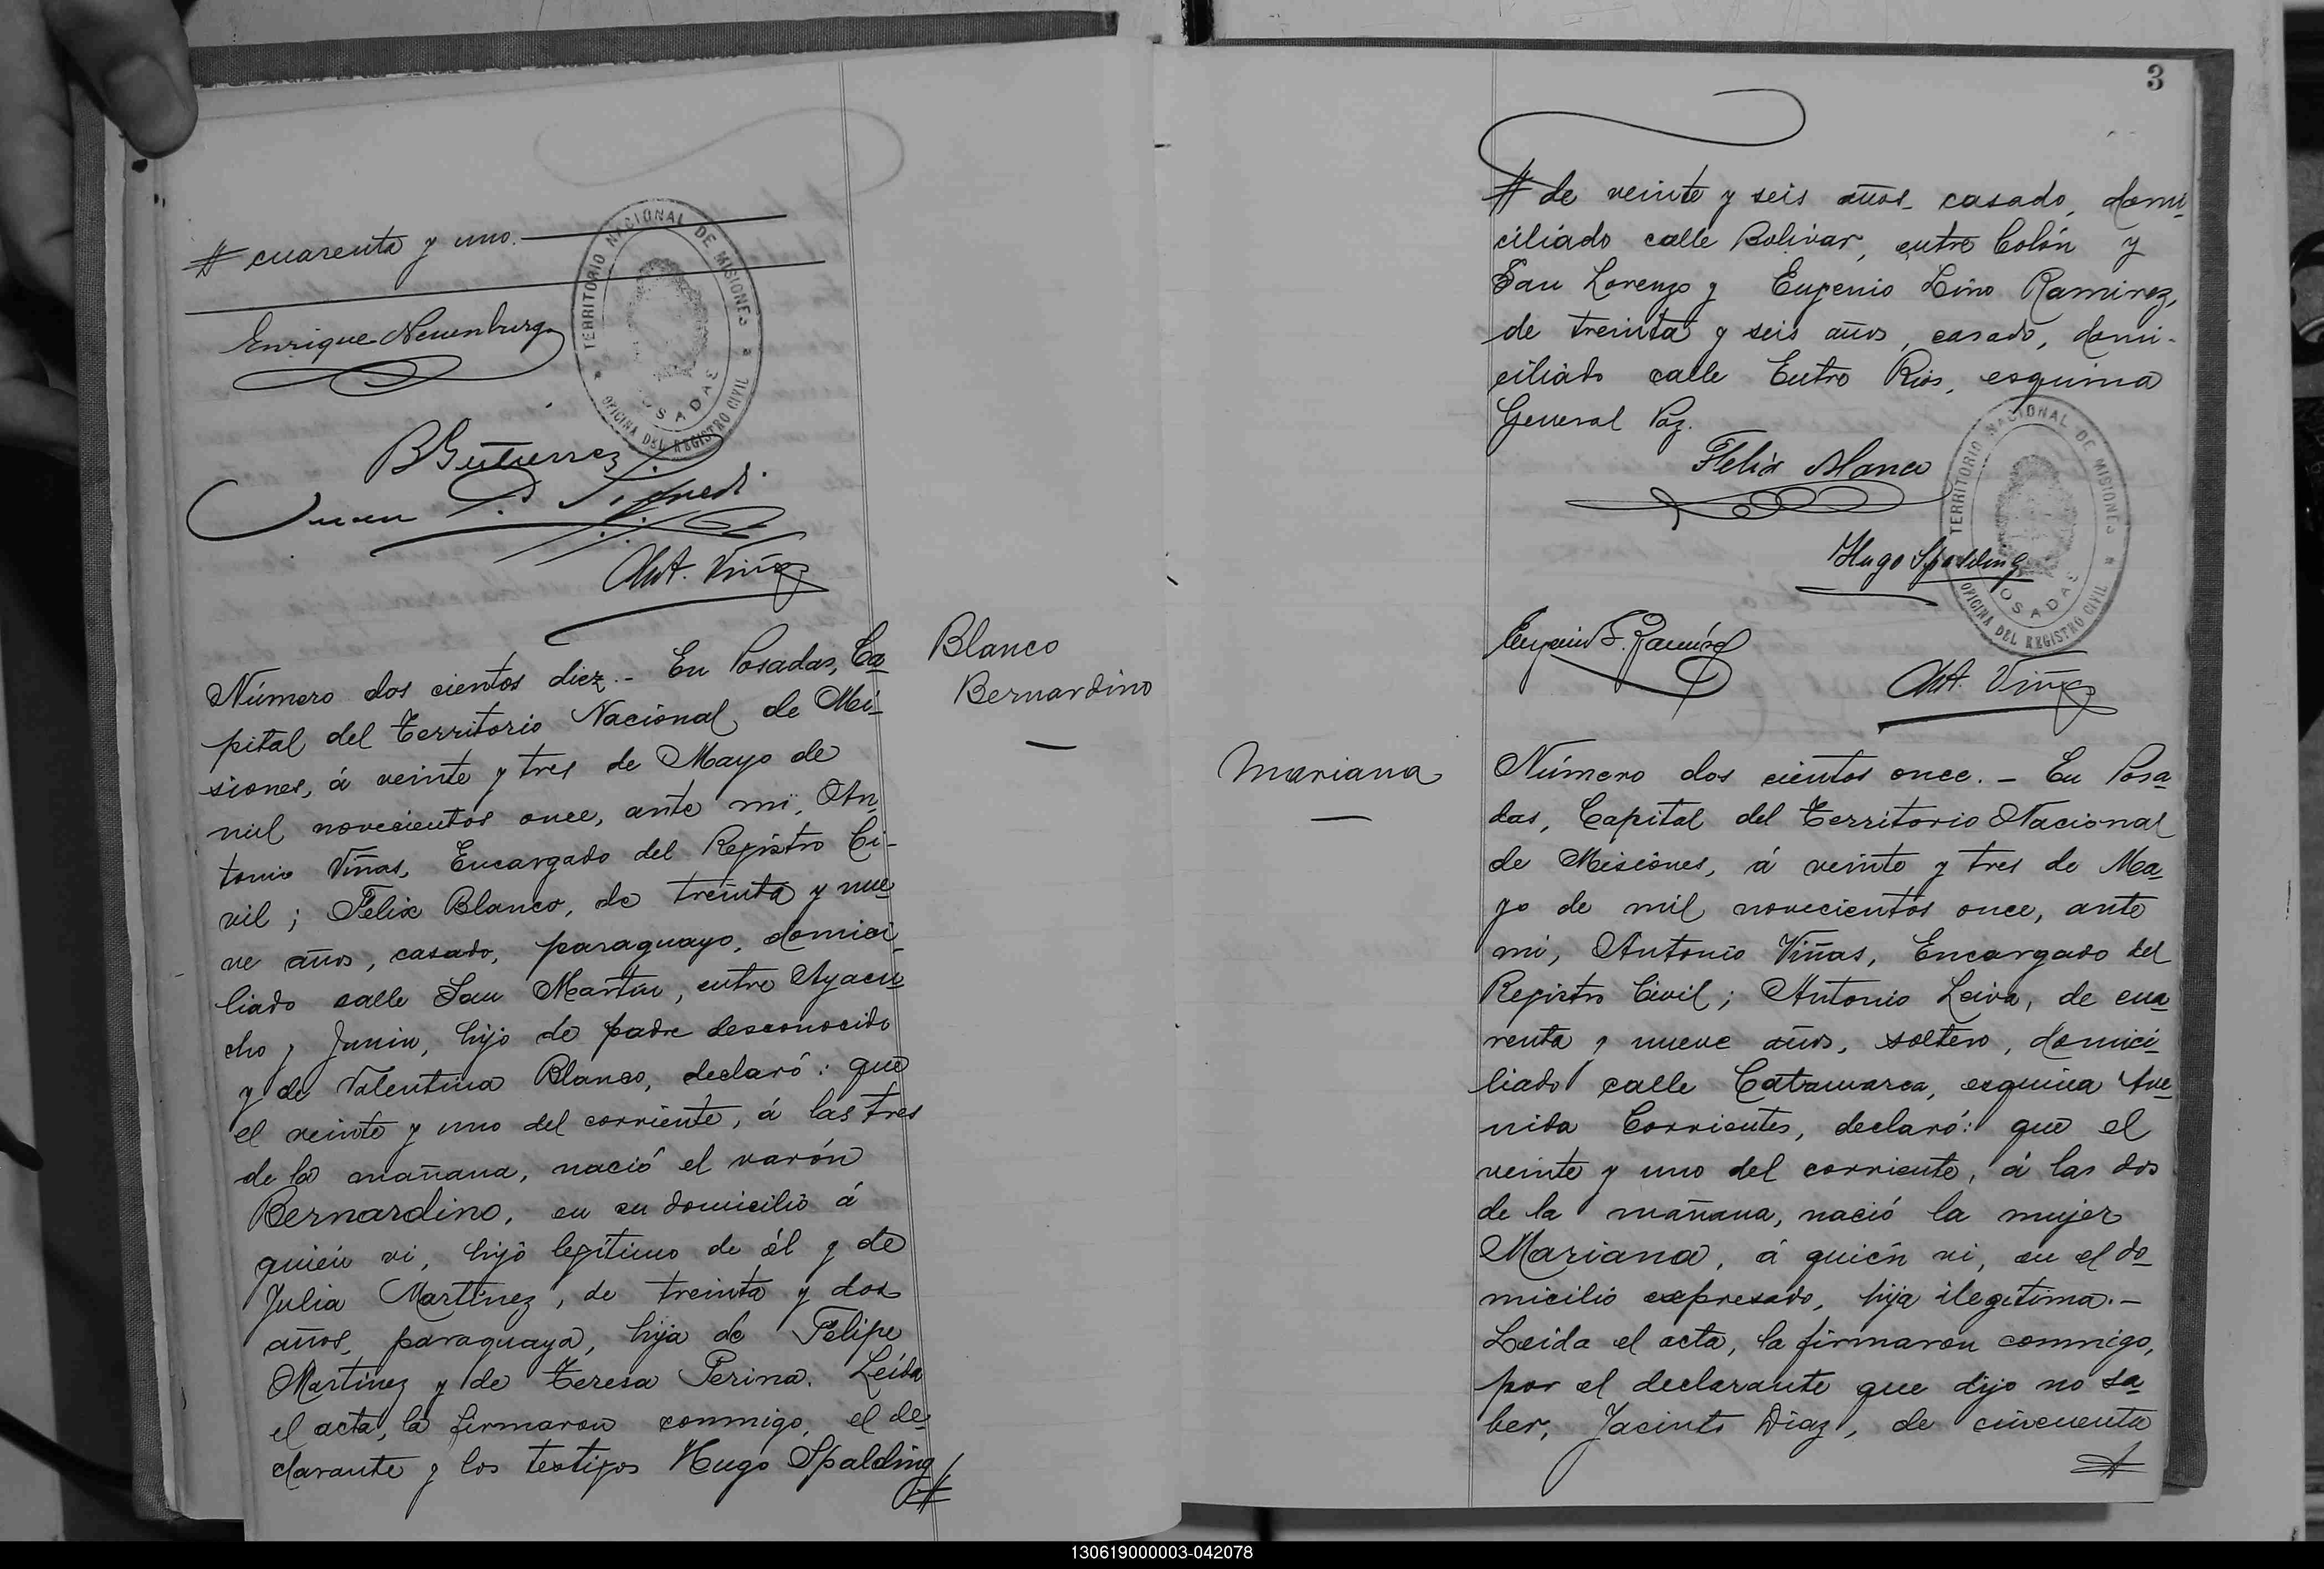 # cuarenta y uno.
Enrique Neuenburg
TERRITORIO NACIONAL DE MISIONES
OFICINA DEL REGISTRO CIVIL
POSADAS
B Gutierrez
Juan
Ant. Viñas
Blanco
Bernardino
Número dos cientos diez.- En Posadas, Ca
pital del Territorio Nacional de Mi-
siones, á veinte y tres de Mayo de
mil novecientos once, ante mi, An
tonio Viñas, Encargado del Registro Ci-
vil; Felix Blanco, de treinta y nue
ve años, casado, paraguayo, domici
liado calle San Martin, entre Ayacu
cho y Junin, hijo de padre desconocido
y de Valentina Blanco, declaró: que
el veinte y uno del corriente, á las tres
de la mañana, nació el varón
Bernardino, en su domicilio á
quien vi, hijo legítimo de él y de
Julia Martinez, de treinta y dos
años, paraguaya, hija de Felipe
Martinez y de Teresa Perina. Leida
el acta, la firmaron conmigo, el de-
clarante y los testigos Hugo Spalding
#
3
# de veinte y seis años, casado, domi-
ciliado calle Bolivar, entre Colón y
San Lorenzo y Eugenio Lino Ramirez,
de treinta y seis años, casado, domi-
ciliado calle Entre Rios, esquina
General Paz.
Felix Blanco
TERRITORIO NACIONAL DE MISIONES
OFICINA DEL REGISTRO CIVIL
POSADAS
Hugo Spalding
Eugenio L. Ramírez
Ant. Viñas
Mariana
Número dos cientos once.- En Posa
das, Capital del Territorio Nacional
de Misiones, á veinte y tres de Ma
yo de mil novecientos once, ante
mi, Antonio Viñas, Encargado del
Registro Civil; Antonio Leiva, de cua
renta y nueve años, soltero, domici-
liado calle Catamarca, esquina Ave
nida Corrientes, declaró: que el
veinte y uno del corriente, á las dos
de la mañana, nació la mujer
Mariana, á quién vi, en el do-
micilio expresado, hija ilegítima.-
Leida el acta, la firmaron conmigo,
por el declarante que dijo no sa
ber, Jacinto Diaz, de cincuenta
#
130619000003-042078